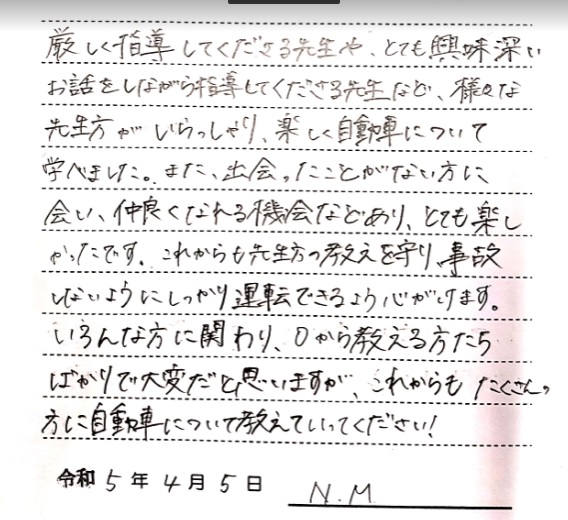 厳しく指導してくださる先生や、とても興味深い
お話をしながら指導してくださる先生など、様々な
先生方がいらっしゃり、楽しく自動車について
学べました。また、出会ったことがない方に
会い、仲良くなれる機会などあり、とても楽し
かったです。これからも先生方の教えを守り、事故
しないようにしっかり運転できるよう心がけます。
いろんな方に関わり、0から教える方たち
ばかりで大変だと思いますが、これからもたくさんの
方に自動車について教えていってください!
令和5年4月5日 N.M